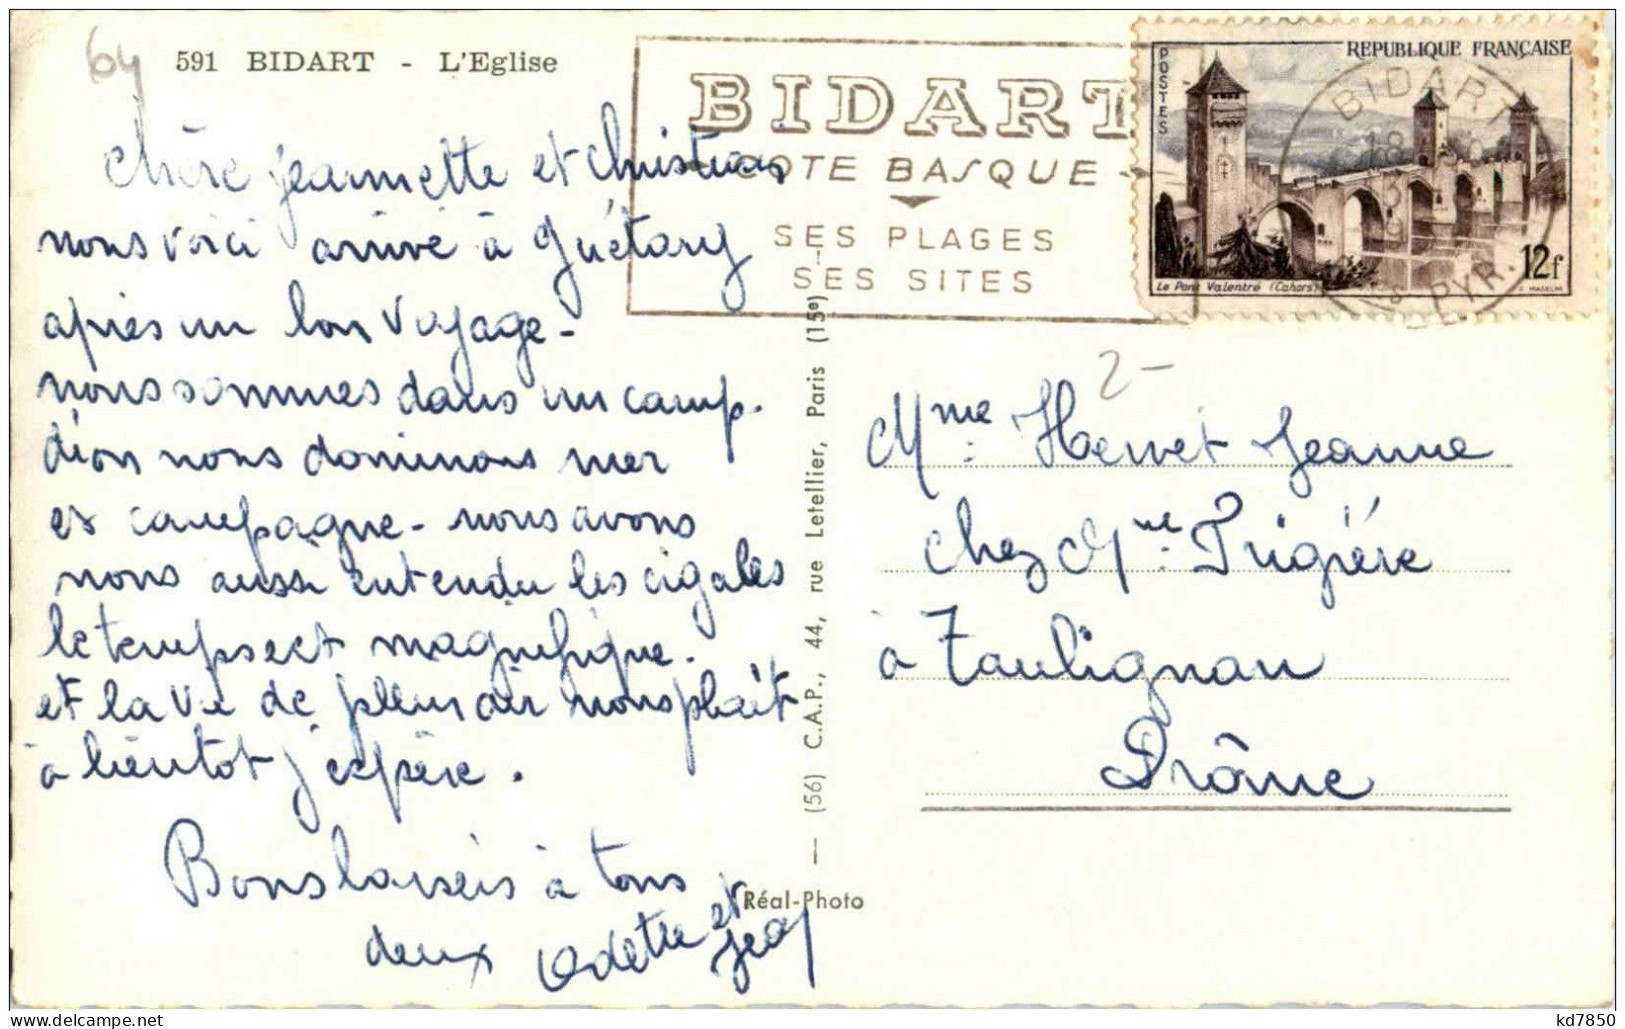 64
591 BIDART - L'Eglise
BIDART
COTE BASQUE
SES PLAGES
SES SITES
POSTES
REPUBLIQUE FRANÇAISE
Le Pont Valentré (Cahors)
12f
BIDART
18
PYR.
chère jeannette et christian
nous voici arrivé à guétary
après un bon voyage -
nous sommes dans un camp.
dion nous dominons mer
et campagne - nous avons
nous aussi entendu les cigales
le temps est magnifique.
et la vie de plein air nous plait
à bientot j'espère.
Bons baisers à tous
deux Odette et
Jean
2-
Mme Hervet Jeanne
chez Mme
à Taulignan
Drôme
(56) C.A.P., 44, rue Letellier, Paris (15e) -
Réal-Photo
delcampe.net
kd7850